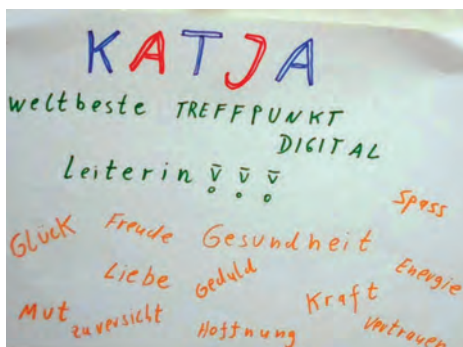 KATJA
weltbeste TREFFPUNKT
DIGITAL
Leiterin
Spass
Glück Freude Gesundheit
Energie
Liebe Geduld
Kraft
Mut zuversicht Hoffnung Vertrauen